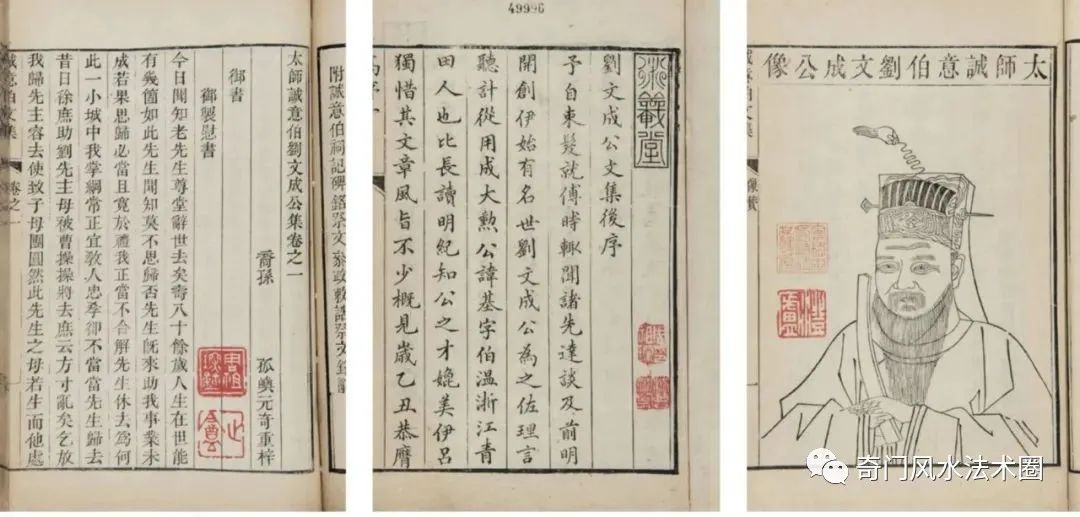 附誠意伯祠記碑銘祭文
太師誠意伯劉文成公集卷之一
裔孫 孤嶼元奇重梓
御書
御製慰書
今日聞知老先生尊堂辭世去矣壽八十餘歲人生在世能
有幾箇如此先生聞知莫不思歸否先生旣來助我事業未
成若果思歸必當且寬於禮我正當不合解先生休去爲何
此一小城中我掌綱常正宜敎人忠孝卻不當當先生歸去
昔日徐庶助劉先主母被曹操操將去庶云方寸亂矣乞放
我歸先主容去使致子母團圓然此先生之母若生而他處
誠意伯文集 卷之一
49996
劉文成公文集後序
予自束髮就傅時輒聞諸先達談及前明
開創伊始有名世劉文成公為之佐理言
聽計從用成大勲公諱基字伯温浙江青
田人也比長讀明紀知公之才媲美伊呂
獨惜其文章風旨不少概見歲乙丑恭膺
太師誠意伯劉文成公像
像贊
奇门风水法术圈